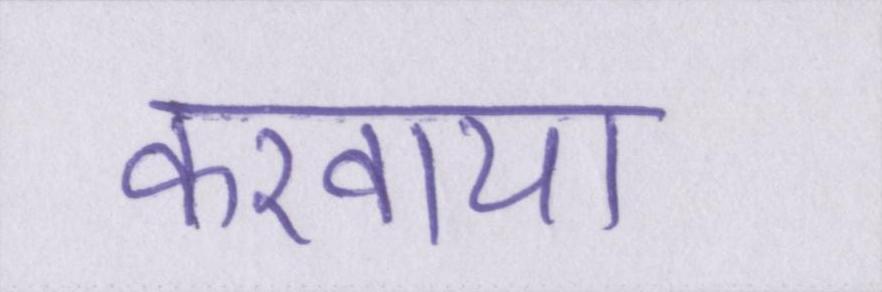 करवाया